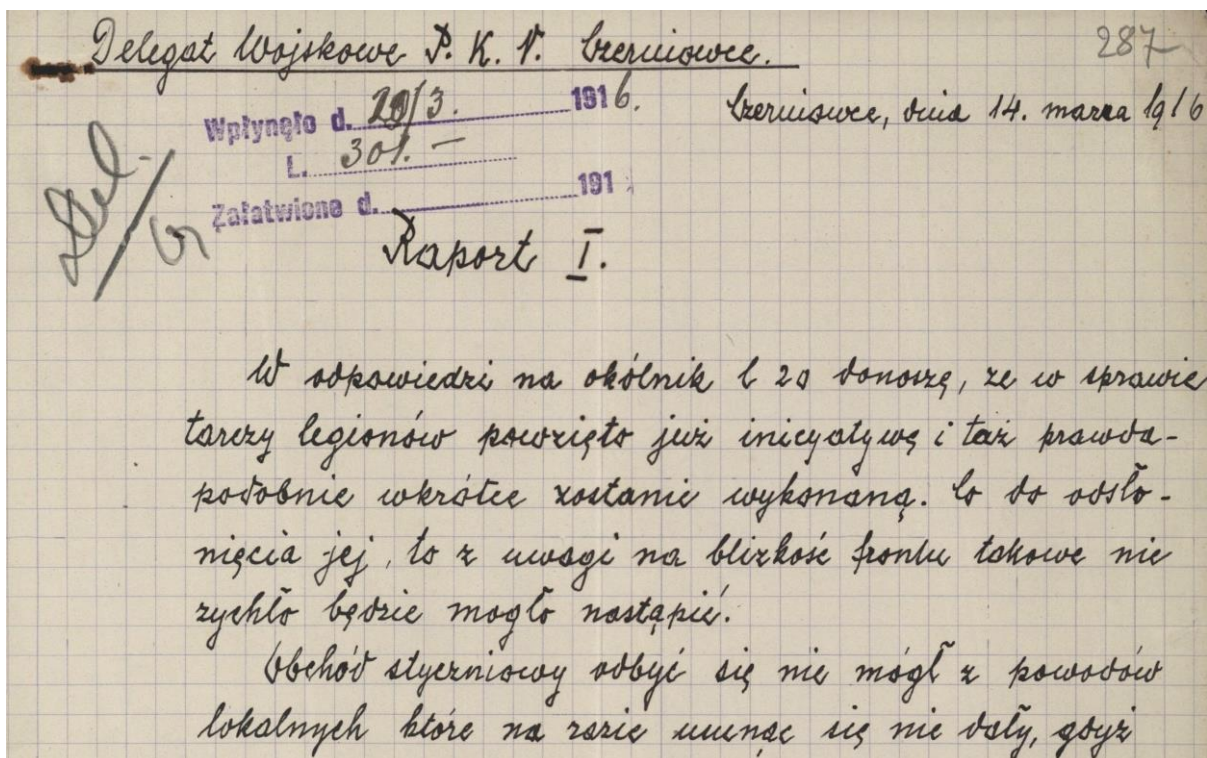 Delegat Wojskowe P. K. N. Czerniowce.
287
Czerniowce, dnia 14. marca 1916
Wpłynęło d. 20/3. 1916.
L. 301. —
Załatwiono d. 191
Raport I.
W odpowiedzi na okólnik l 20 donoszę, że w sprawie
tarczy legionów powzięto już inicyatywę i taż prawda-
podobnie wkrótce zostanie wykonaną. Co do odsło-
nięcia jej, to z uwagi na blizkość frontu takowe nie
rychło będzie mogło nastąpić.
Obchód styczniowy odbyć się nie mógł z powodów
lokalnych które na razie usunąć się nie dały, gdyż